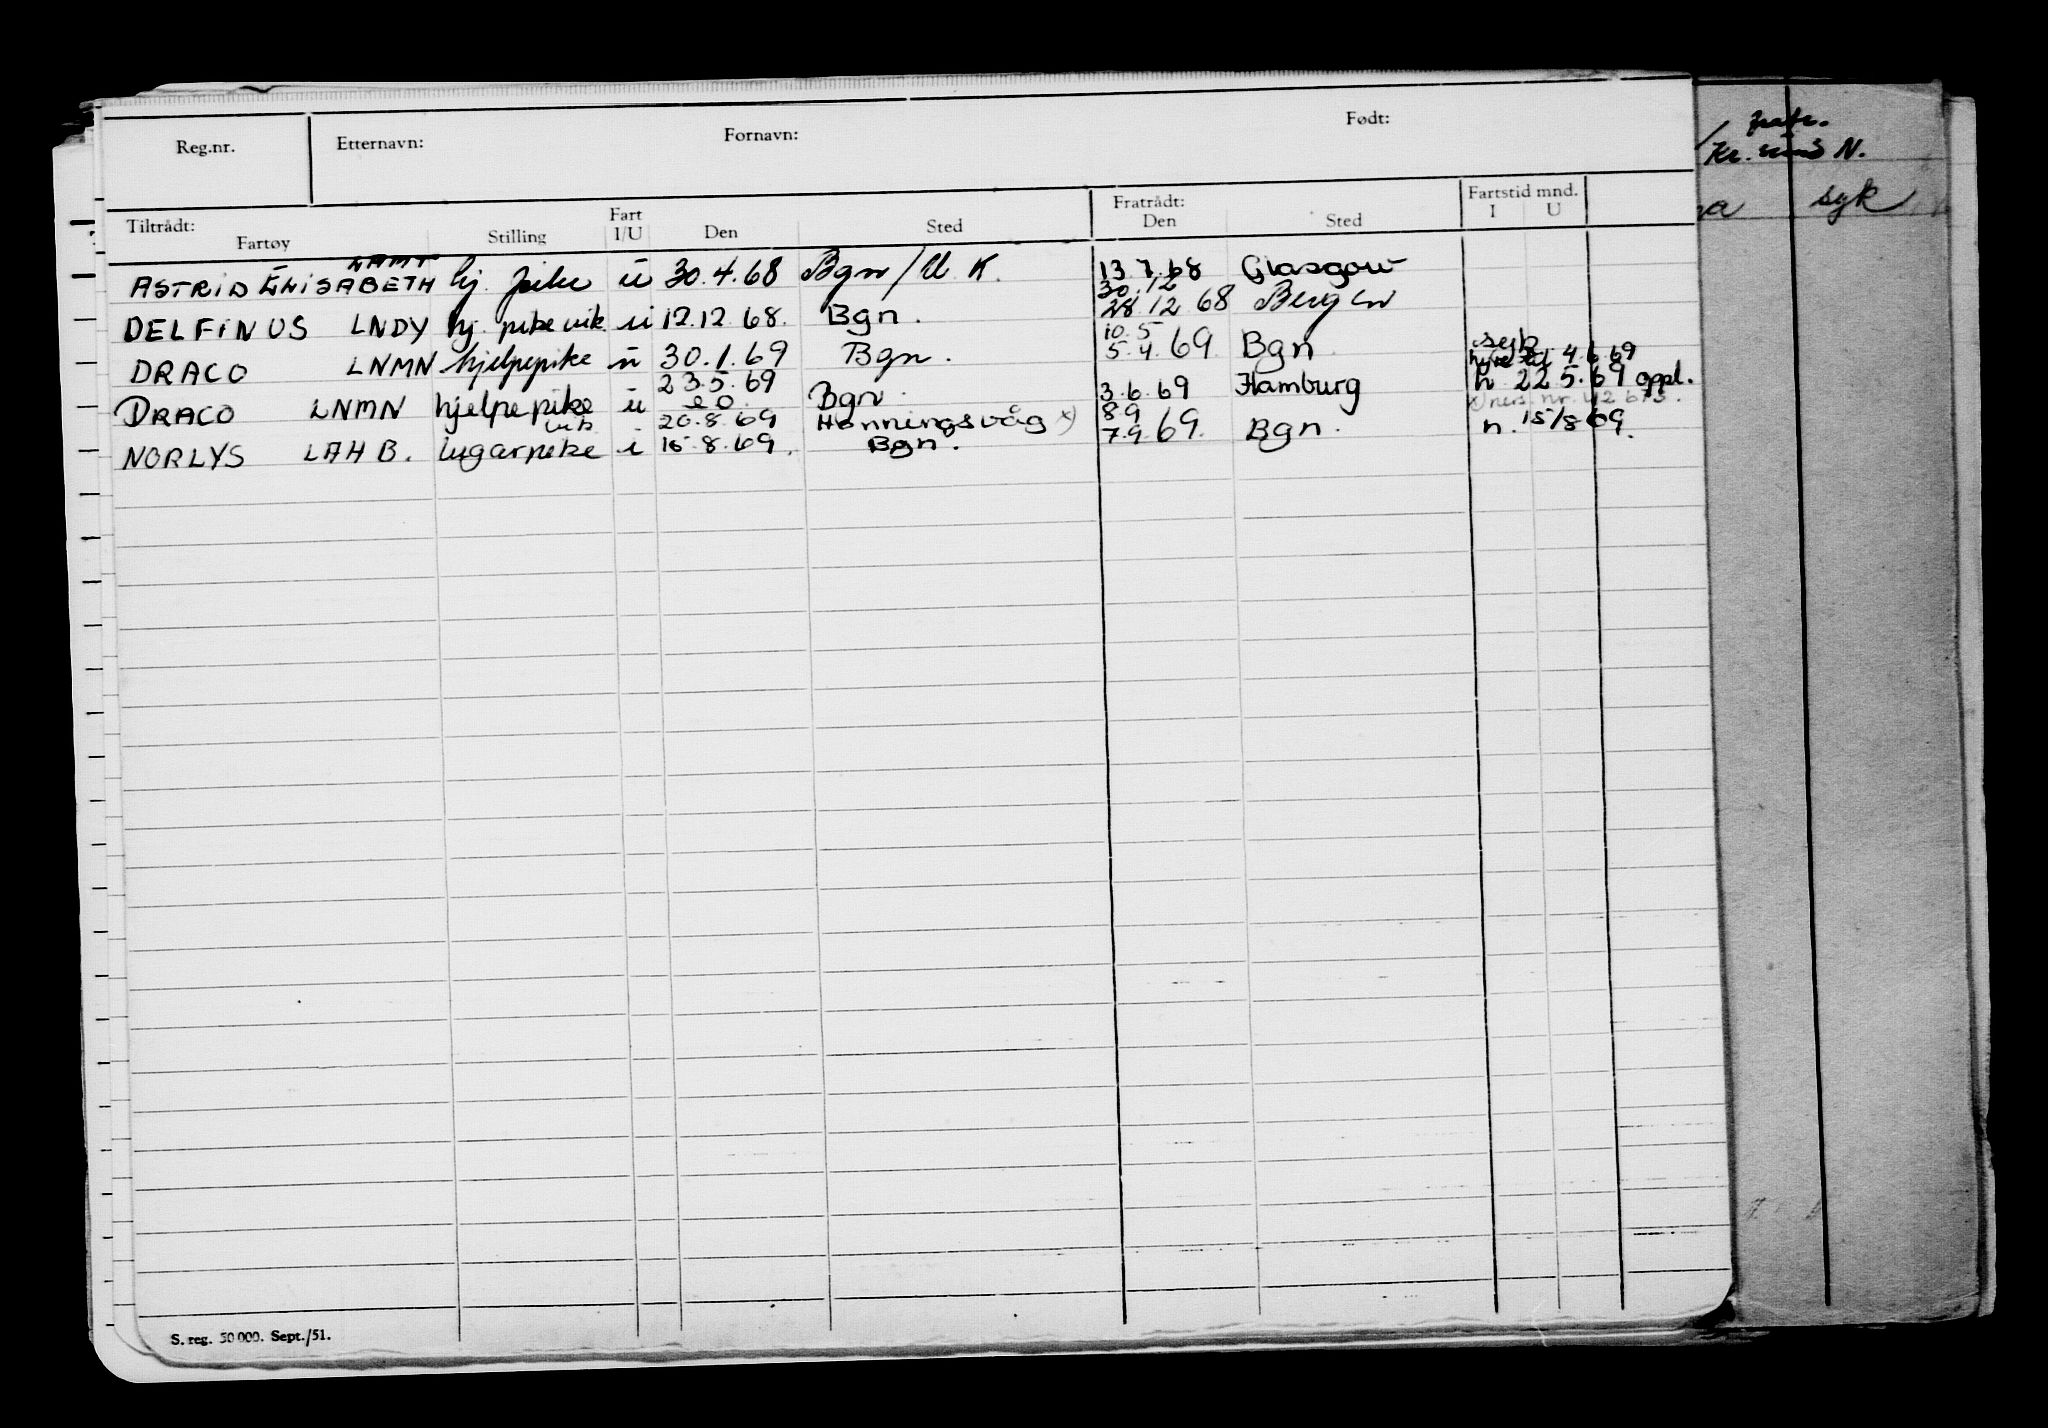 Reg.nr. Etternavn: Fornavn: Født:
Tiltrådt: Fratrådt: Fartstid mnd.
Fartøy Stilling Fart I/U Den Sted Den Sted I U
ASTRID ELISABETH hj. pike u 30.4.68 Bgn/U.K. 13.7.68 Glasgow
30.12
DELFINUS LNDY hj. pike vik. u 12.12.68. Bgn. 28.12 68 Bergen
10.5
DRACO LNMN hjelpepike u 30.1.69 Bgn. 5.4.69 Bgn syk
4.6.69
DRACO LNMN hjelpepike u 23.5.69 Bgn 3.6.69 Hamburg h. 22 5.69 oppl.
vik. 20.8.69 Honningsvåg x) 8.9
NORLYS LAHB. lugarpike i 15.8.69. Bgn. 7.9.69. Bgn. n. 15/8 69.
S. reg. 50 000. Sept./51.
Kr. sund N.
syk